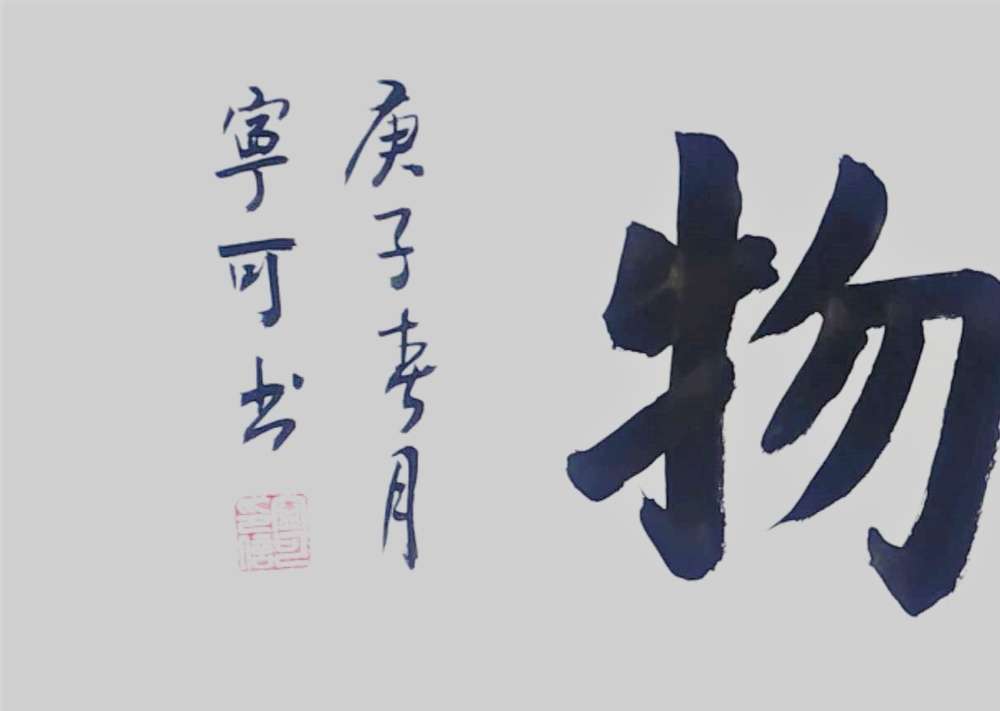 物
庚子春月
寜可书